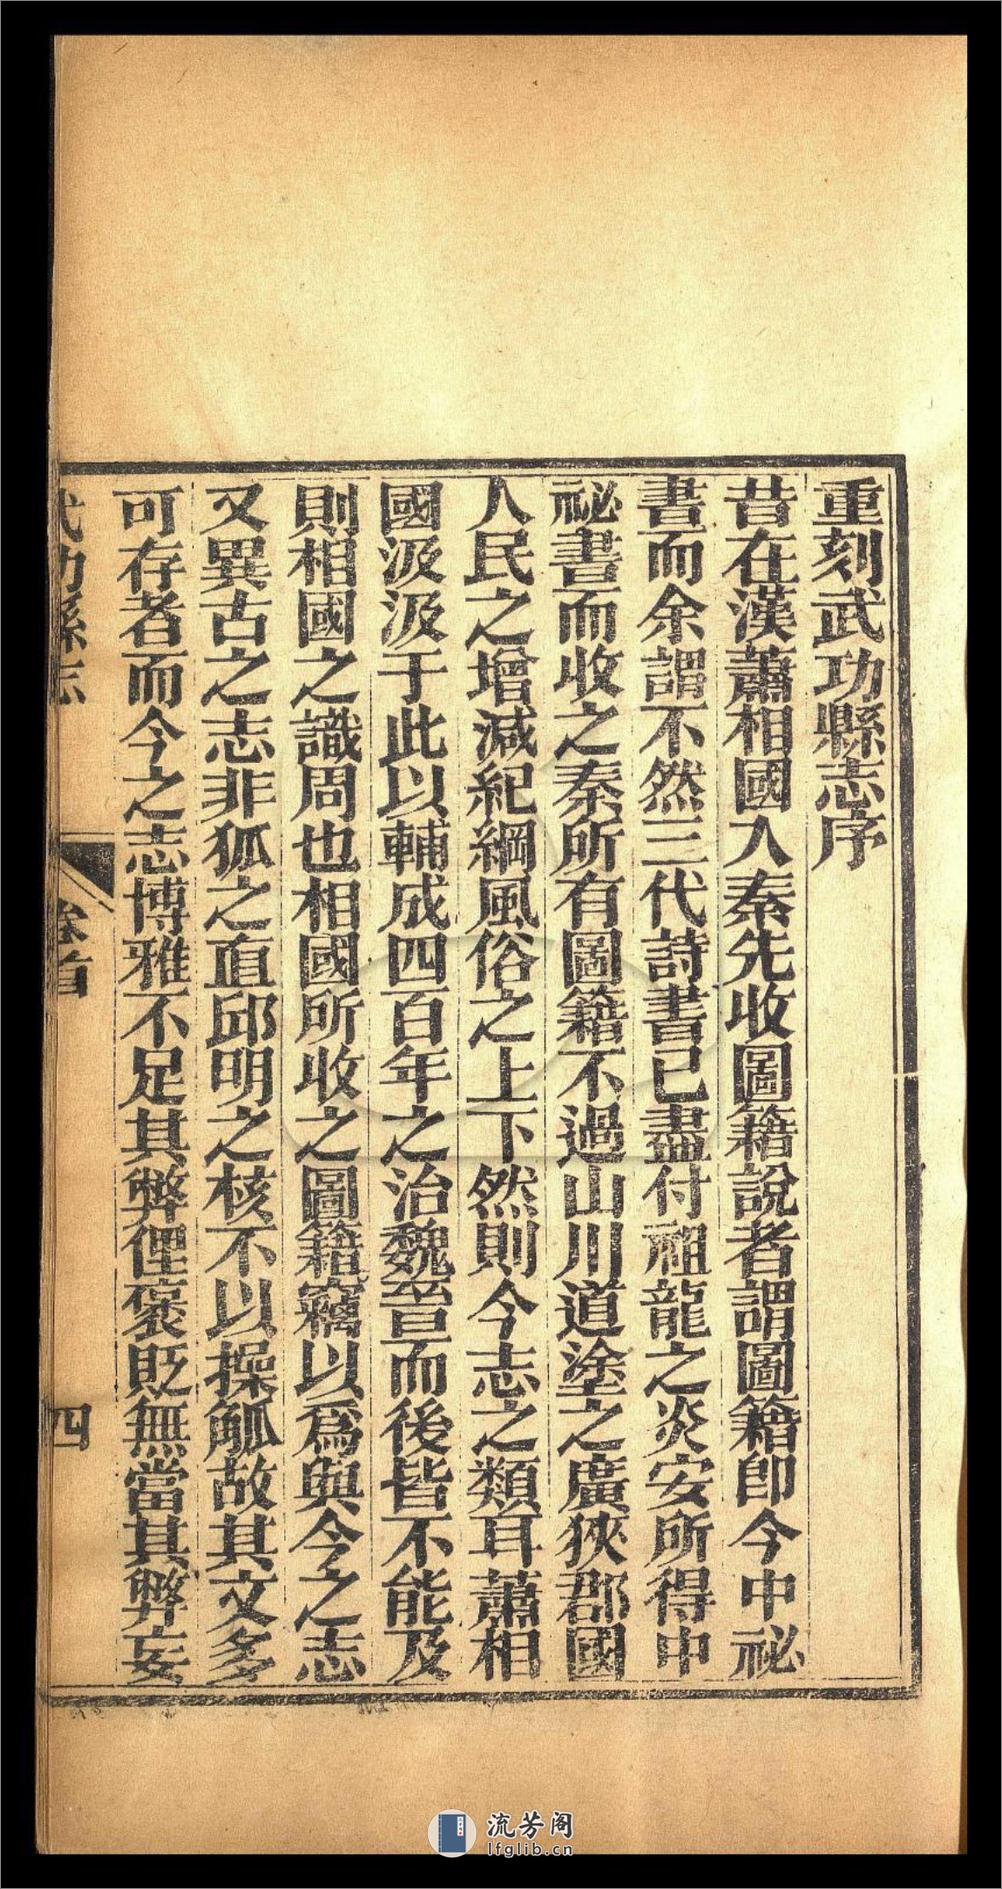 重刻武功縣志序
昔在漢蕭相國入秦先收圖籍說者謂圖籍即今中祕
書而余謂不然三代詩書已盡付祖龍之炎安所得中
祕書而收之秦所有圖籍不過山川道塗之廣狹郡國
人民之增減紀綱風俗之上下然則今志之類耳蕭相
國汲汲于此以輔成四百年之治魏晉而後皆不能及
則相國之識周也相國所收之圖籍竊以爲與今之志
又異古之志非狐之直邱明之核不以操觚故其文多
可存者而今之志博雅不足其弊俚褒貶無當其弊妄
武功縣志 卷首 四
流芳阁
lfglib.cn